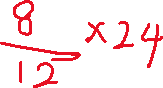 8/12 × 24